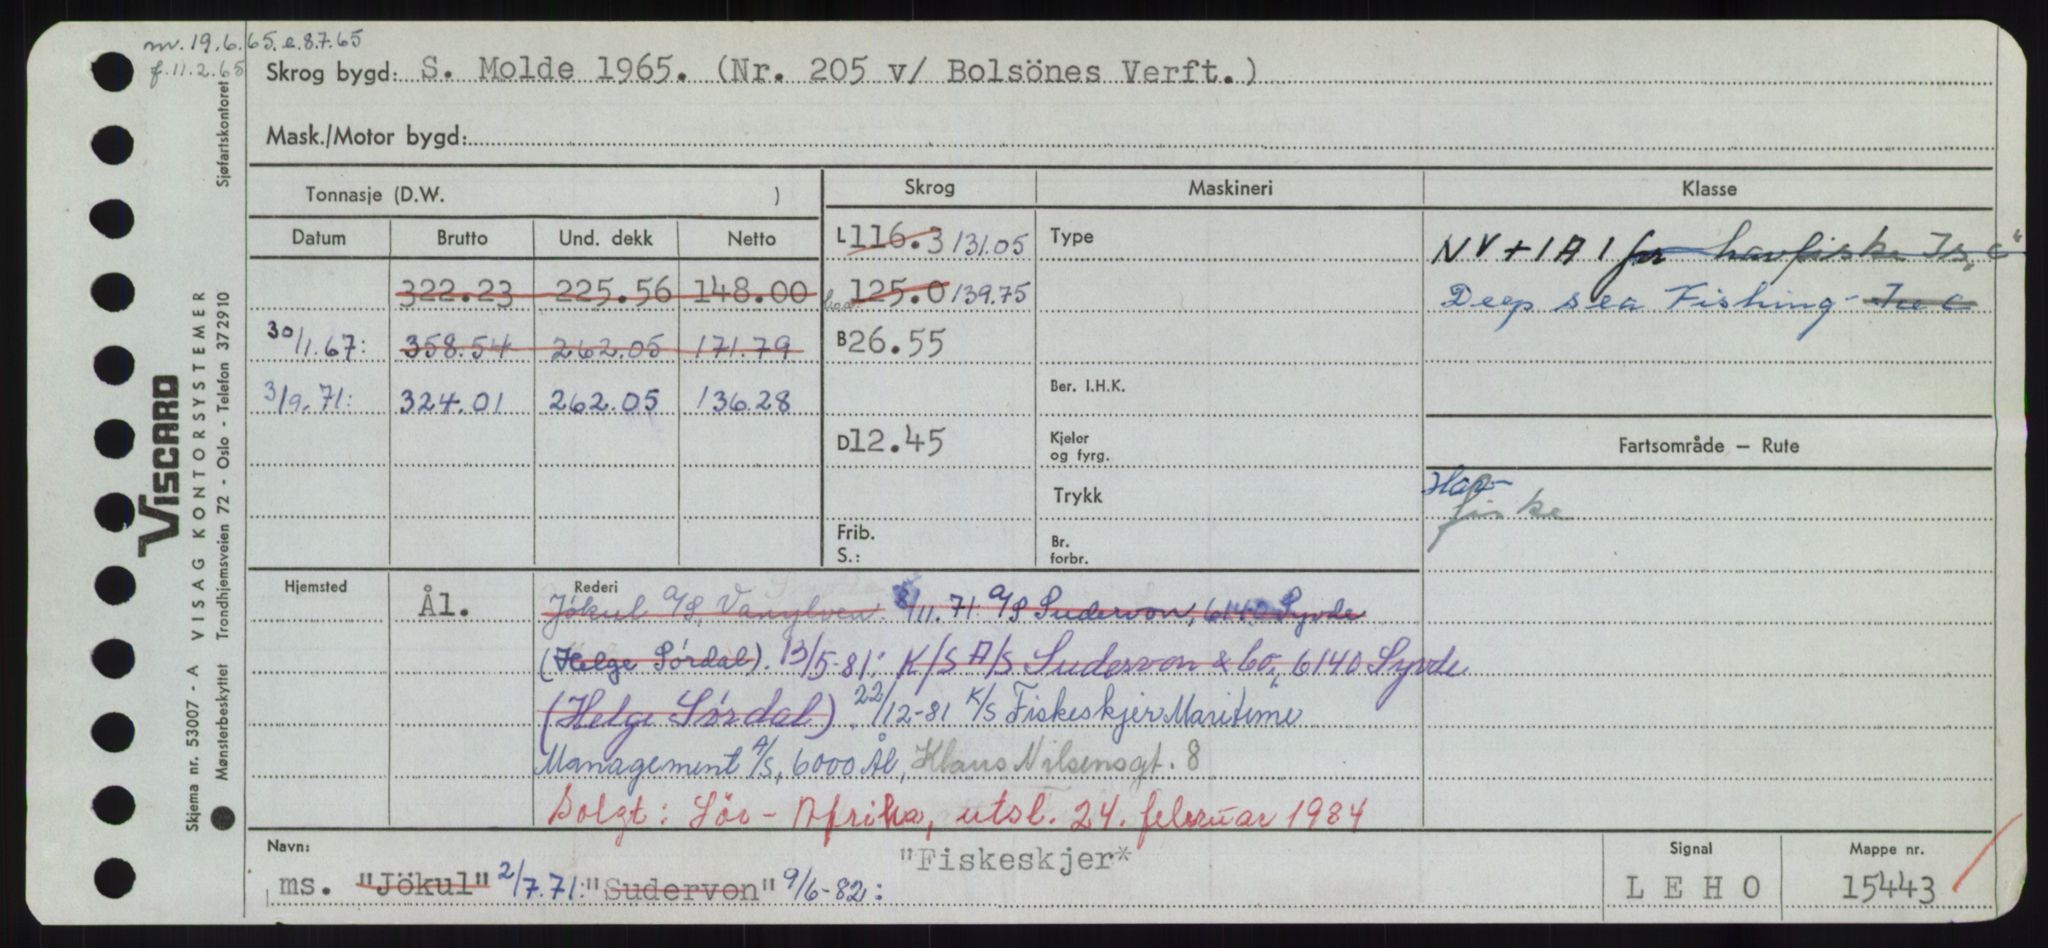 m. 19.6.65. e. 8.7.65
f. 11.2.65
Skrog bygd: S. Molde 1965. (Nr. 205 v/ Bolsönes Verft.)
Mask./Motor bygd:
Tonnasje (D.W. )
Skrog Maskineri Klasse
Datum Brutto Und. dekk Netto
L 116.3 131.05 Type NV + 1A1 for havfiske Is "C"
322.23 225.56 148.00 125.0 139.75 Deep sea Fishing - Ice C
30/1.67: 358.54 262.05 171.79 B 26.55
3/9.71: 324.01 262.05 136.28 Ber. I.H.K.
D 12.45 Kjeler og fyrg. Fartsområde — Rute
Trykk Hav-
fiske
Frib. S.: Br. forbr.
Hjemsted Ål. Rederi
Jökul A/S, Vanylven. 8/11.71 A/S Sudervon, 6140 Syvde
(Helge Sørdal). 13/5-81: K/S A/S Sudervon & Co., 6140 Syvde
(Helge Sørdal). 22/12-81 K/S Fiskeskjer Maritime
Management A/S, 6000 Ål, Klaus Nilsensgt. 8
Solgt: Sör-Afrika, utsl. 24. februar 1984
Navn: "Fiskeskjer" Signal Mappe nr.
ms. "Jökul" 2/7.71: "Sudervon" 9/6-82: LEHO 15443
VISCARD
VISAG KONTORSYSTEMER
Sjøfartskontoret
Skjema nr. 53007 - A
Mønsterbeskyttet Trondhjemsveien 72 - Oslo - Telefon 372910